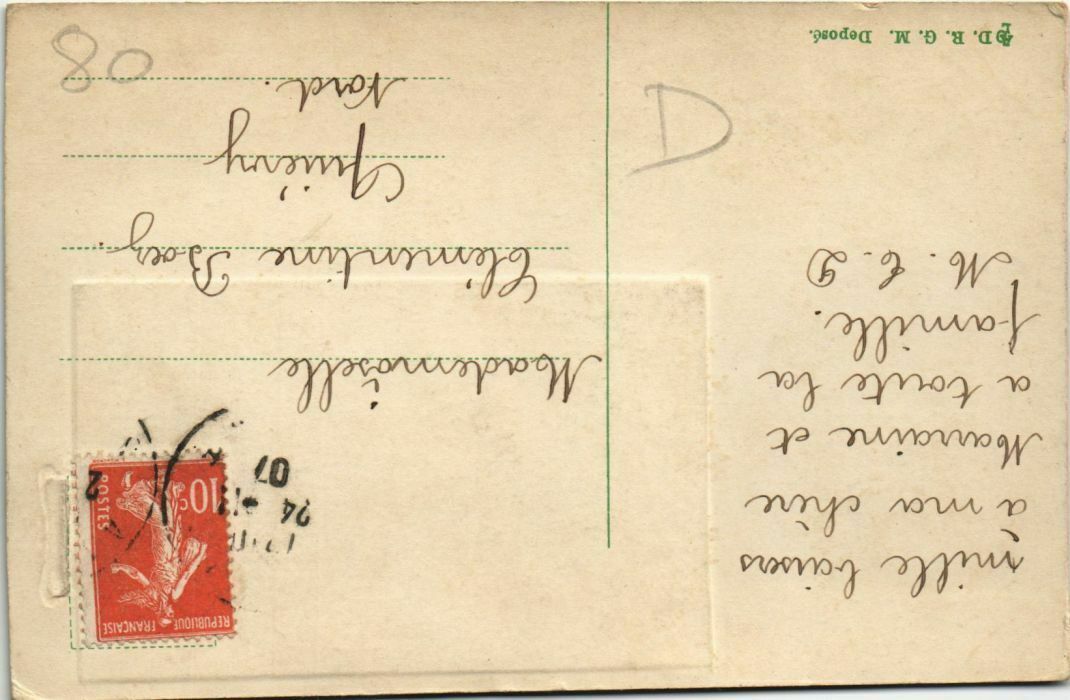 mille baisers
à ma chère
Marraine et
a toute la
famille.
M. C. D
D. R. G. M. Deposé.
D
Mademoiselle
Clémentine
Quiévy
Nord.
80
REPUBLIQUE FRANÇAISE
10c
POSTES
24
07
2